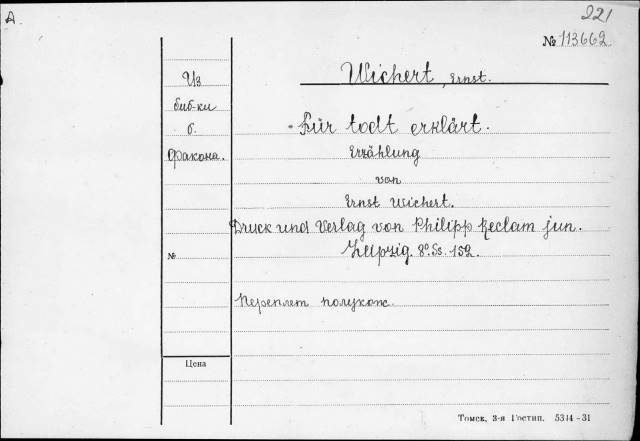 А
221
№ 113662
Wichert, Ernst.
Из
биб-ки
б.
Фракона.
Für todt erklärt.
Erzählung
von
Ernst Wichert.
Druck und Verlag von Philipp Reclam jun.
Leipzig. 8º. Ss. 152.
№
Переплет полукож.
Цена
Томск, 3-я Гостип. 5314-31